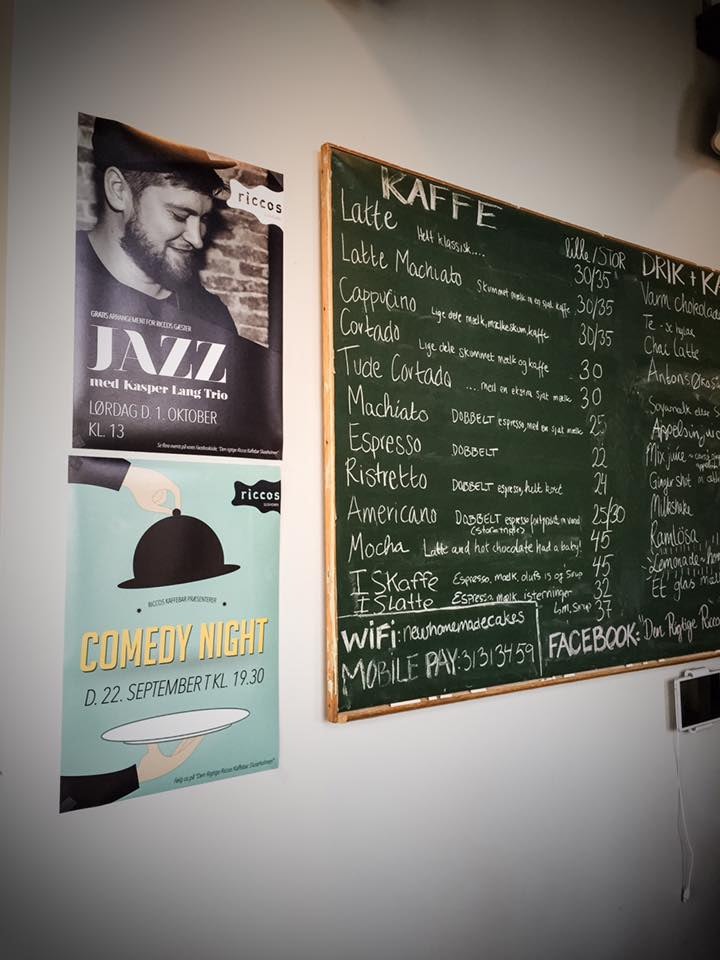 riccos
GRATIS ARRANGEMENT FOR RICCOS GÆSTER
JAZZ
med Kasper Lang Trio
LØRDAG D. 1. OKTOBER
KL. 13
Se flere events på vores Facebookside, "Den rigtige Riccos Kaffebar Sluseholmen"
riccos
RICCOS KAFFEBAR PRÆSENTERER
COMEDY NIGHT
D. 22. SEPTEMBER T KL. 19.30
Følg os på "Den Rigtige Riccos Kaffebar Sluseholmen"
KAFFE
lille/STOR
Latte Helt klassisk.... 30/35
Latte Machiato Skummet mælk m en sjat kaffe 30/35
Cappucino Lige dele mælk, mælkeskum, kaffe 30/35
Cortado Lige dele skummet mælk og kaffe 30
Tude Cortado ....med en ekstra sjat mælk 30
Machiato DOBBELT espresso, med en sjat mælk 25
Espresso DOBBELT 22
Ristretto DOBBELT espresso, helt kort 24
Americano DOBBELT espresso fortyndet m vand 25/30
(stor=triple)
Mocha Latte and hot chocolate had a baby! 45
ISKaffe Espresso, mælk, fløde, is og sirup 45
ISLatte Espresso, mælk, isterninger 32
t.m. sirup 37
WiFi: newhomemadecakes
MOBILE PAY: 31313459
DRIK + KA
Varm chokolade
Te - se hylde
Chai Latte
Antons Økos
Sojamælk eller
Appelsinjuice
Mix juice
Ginger shot
Milkshake
Ramlösa
Lemonade
Et glas mæl
FACEBOOK: "Den Rigtige Ricco